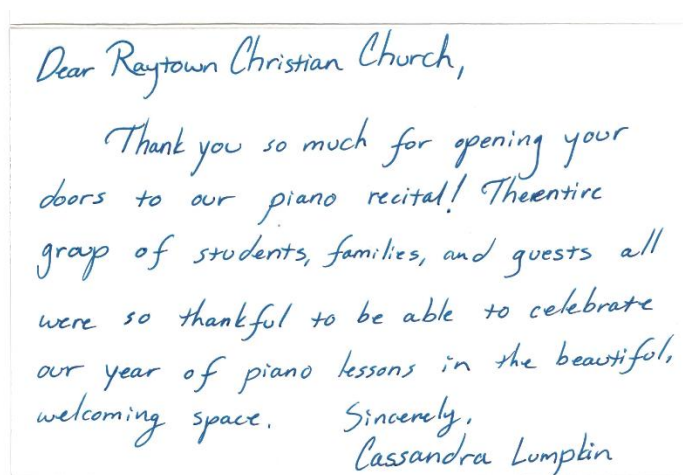 Dear Raytown Christian Church,
Thank you so much for opening your
doors to our piano recital! The entire
group of students, families, and guests all
were so thankful to be able to celebrate
our year of piano lessons in the beautiful,
welcoming space. Sincerely,
Cassandra Lumpkin